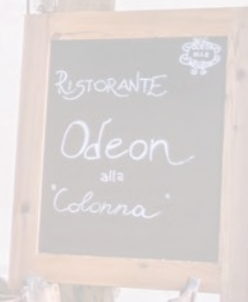 RISTORANTE
Odeon
alla
"Colonna"